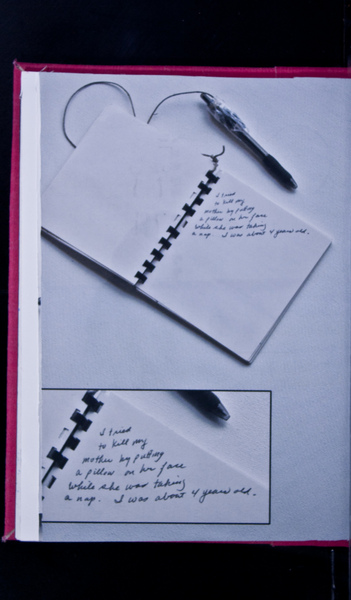 I tried
to kill my
mother by putting
a pillow on her face
while she was taking
a nap... I was about 4 years old.
I tried
to kill my
mother by putting
a pillow on her face
while she was taking
a nap. I was about 4 years old.